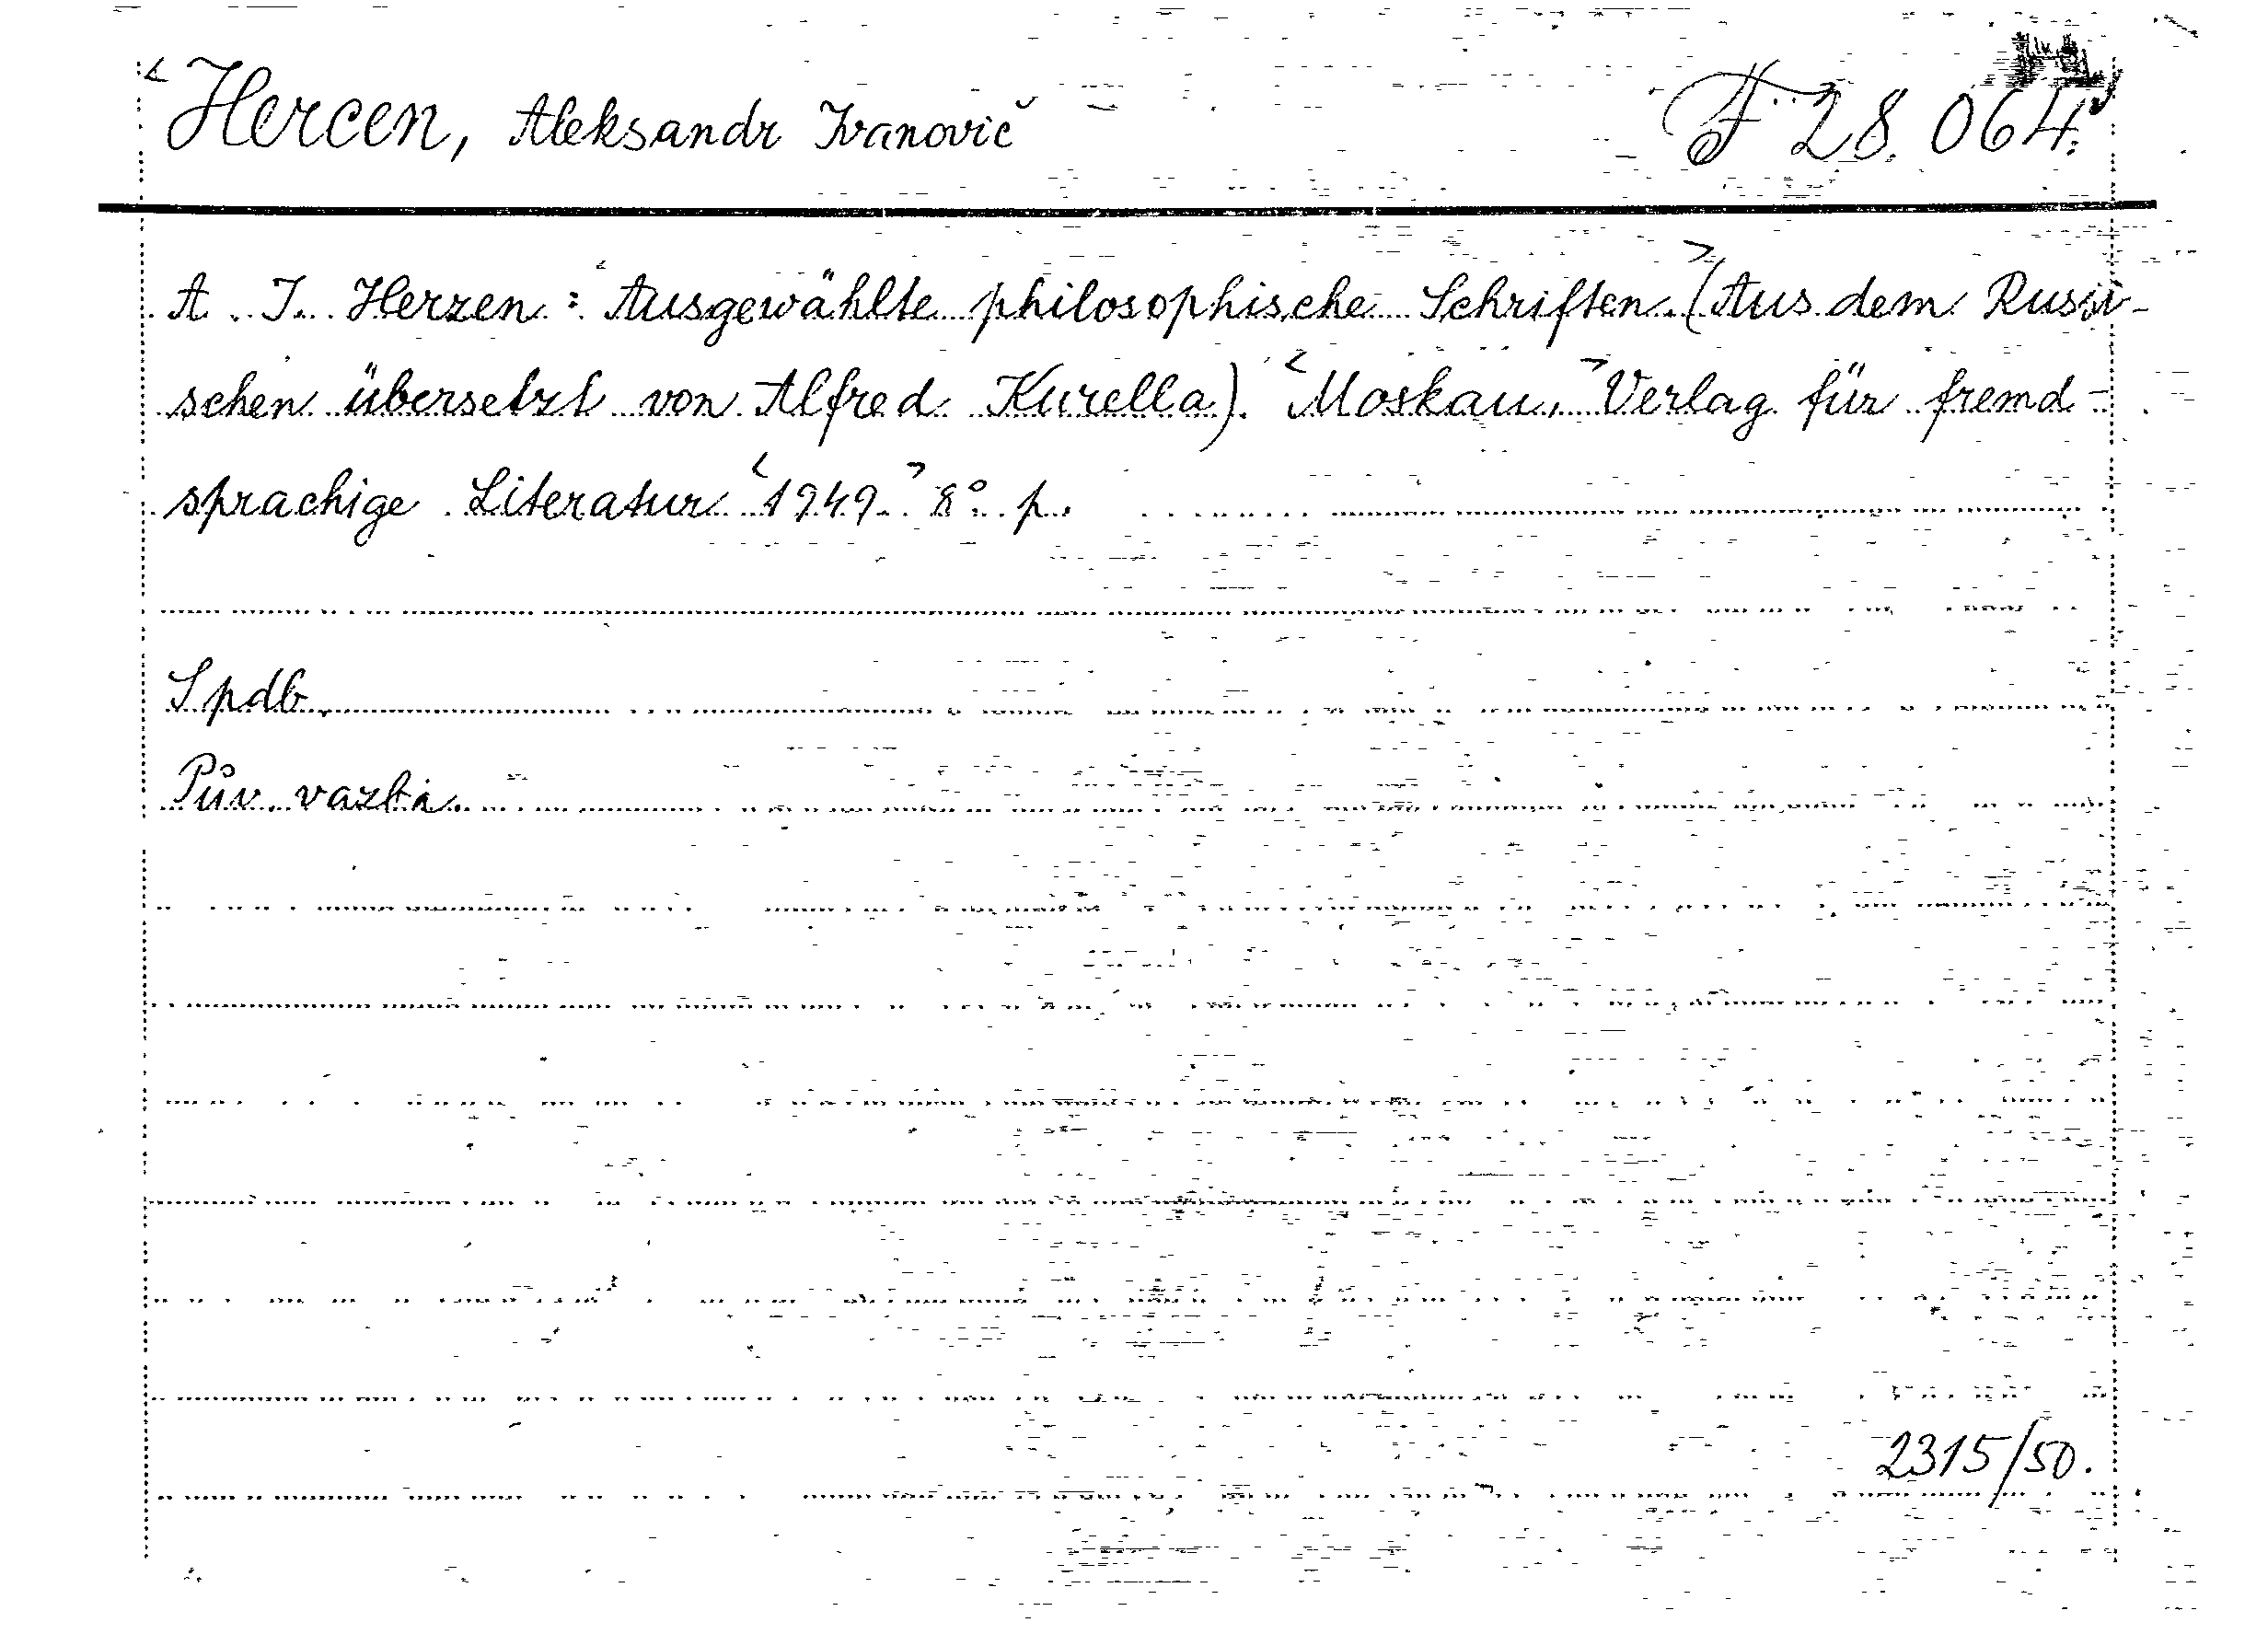 Hercen, Aleksandr Ivanovič F 28.064.
A. I. Herzen: Ausgewählte philosophische Schriften. (Aus dem Russi-
schen übersetzt von Alfred Kurella). Moskau, Verlag für fremd-
sprachige Literatur 1949. 8° p.
Spdb.
Pův. vazba.
2315/50.